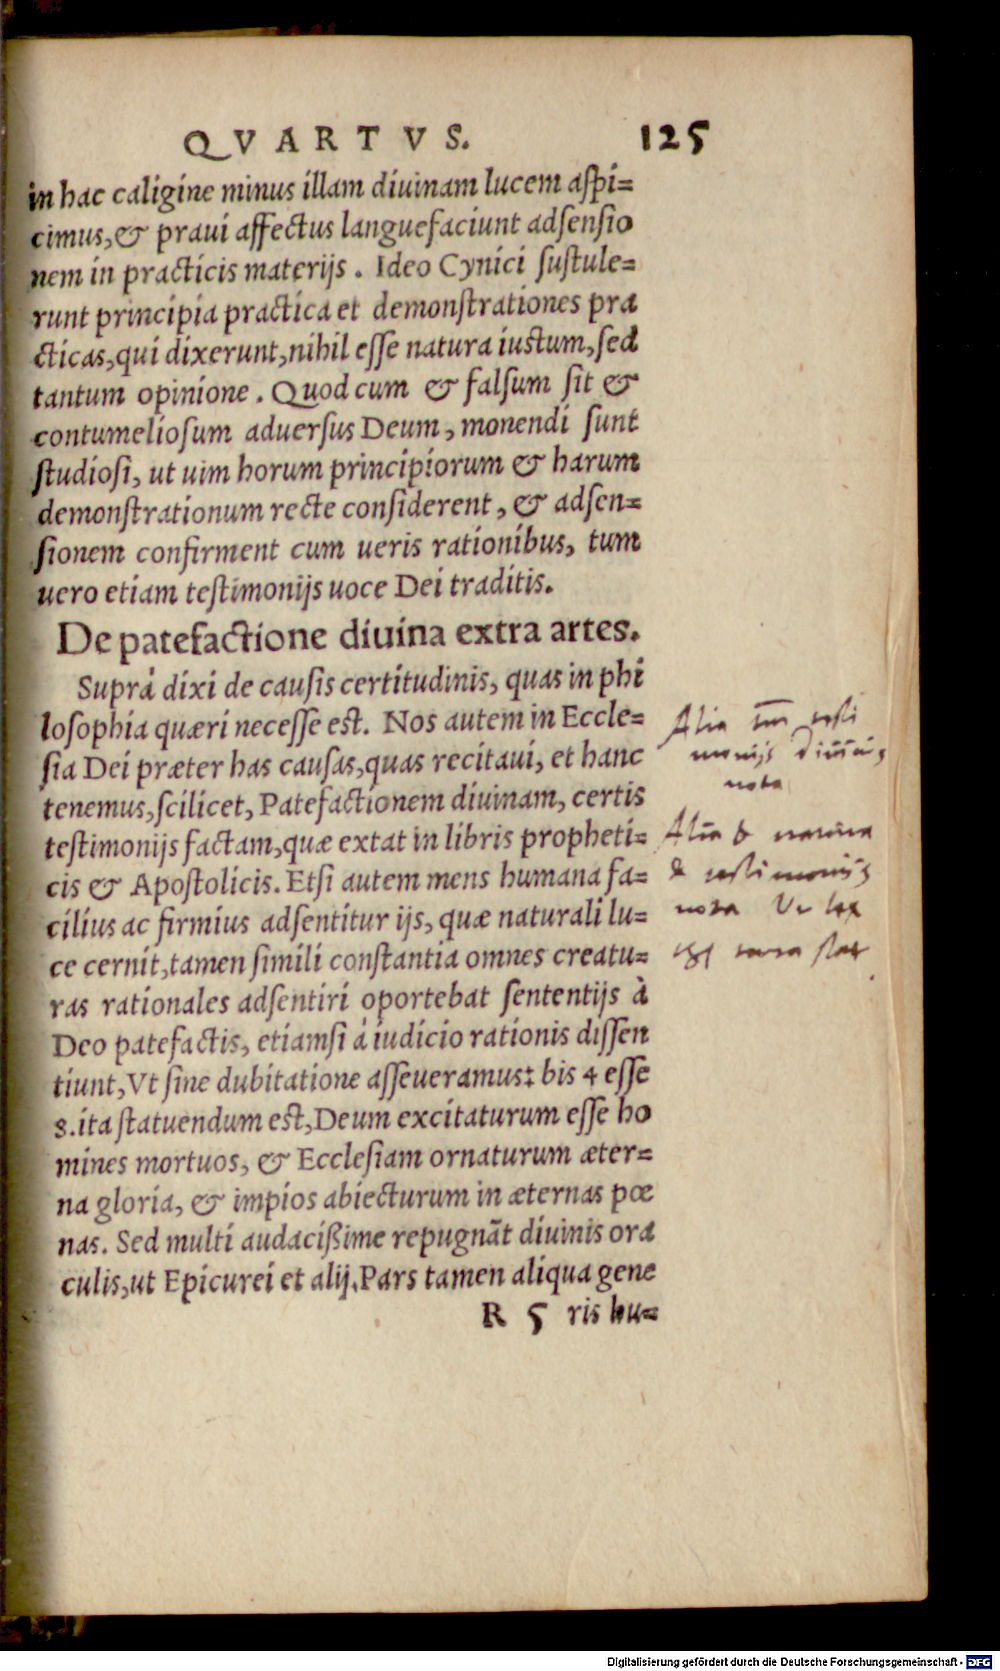 QVARTVS. 125
in hac caligine minus illam diuinam lucem aspi=
cimus, & praui affectus languefaciunt adsensio
nem in practicis materijs. Ideo Cynici sustule=
runt principia practica et demonstrationes pra
cticas, qui dixerunt, nihil esse natura iustum, sed
tantum opinione. Quod cum & falsum sit &
contumeliosum aduersus Deum, monendi sunt
studiosi, ut uim horum principiorum & harum
demonstrationum recte considerent, & adsen=
sionem confirment cum ueris rationibus, tum
uero etiam testimonijs uoce Dei traditis.
De patefactione diuina extra artes.
Suprà dixi de causis certitudinis, quas in phi
losophia quæri necesse est. Nos autem in Eccle=
sia Dei præter has causas, quas recitaui, et hanc
tenemus, scilicet, Patefactionem diuinam, certis
testimonijs factam, quæ extat in libris propheti=
cis & Apostolicis. Etsi autem mens humana fa=
cilius ac firmius adsentitur ijs, quæ naturali lu=
ce cernit, tamen simili constantia omnes creatu=
ras rationales adsentiri oportebat sententijs à
Deo patefactis, etiamsi à iudicio rationis dissen
tiunt, Vt sine dubitatione asseueramus: bis 4 esse
8. ita statuendum est, Deum excitaturum esse ho
mines mortuos, & Ecclesiam ornaturum æter=
na gloria, & impios abiecturum in æternas pœ
nas. Sed multi audacißime repugnāt diuinis ora
culis, ut Epicurei et alij. Pars tamen aliqua gene
R 5 ris hu=
Alia testi
monijs diuinis
nota
Alia &
& testimonijs
nota Vt lex
Digitalisierung gefördert durch die Deutsche Forschungsgemeinschaft - DFG